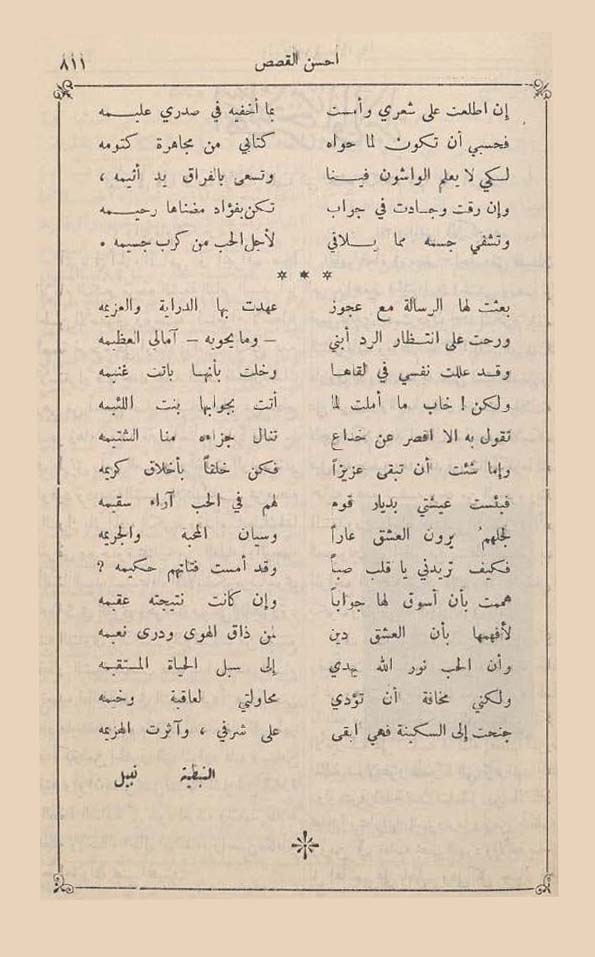 احسن القصص ٨١١
إن اطلعت على شعري وأمست بما أخفيه في صدري عليمه
فحسبي أن تكون لما حواه كتابي من مجاهرة كتومه
لكي لا يعلم الواشون فينا وتسعى بالفراق يد أثيمه ،
وإن رقت وجادت في جواب تكن بفؤاد مضناها رحيمه
وتشفي جسمه مما يلاقي لأجل الحب من كرب جسيمه .
* * *
بعثت لها الرسالة مع عجوز عهدت بها الدراية والعزيمه
ورحت على انتظار الرد أبني – وما يحوبه – آمالي العظيمه
وقد عللت نفسي في لقاها وخلت بأنها باتت غنيمه
ولكن ! خاب ما أملت لما أتت بجوابها بنت اللئيمه
تقول به الا اقصر عن خداع تنال جزاءه منا الشتيمه
وإما شئت أن تبقى عزيزاً فكن خلقاً بأخلاق كريمه
فبئست عيشتي بديار قوم لهم في الحب آراء سقيمه
لجلهمُ يرون العشق عاراً وسيان المحبة والجريمه
فكيف تريدني يا قلب صباً وقد أمست فتاتهم حكيمه ?
هممت بأن أسوق لها جواباً وإن كانت نتيجته عقيمه
لأفهمها بأن العشق دين لمن ذاق الهوى ودرى نعيمه
وأن الحب نور الله يهدي إلى سبل الحياة المستقيمه
ولكني مخافة أن تؤدي محاولتي لعاقبة وخيمه
جنحت إلى السكينة فهي ابقى على شرفي ، وآثرت الهزيمه
النبطية نبيل